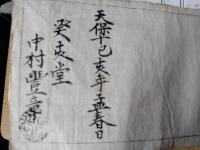 天保十己亥年孟春日
癸亥堂
中村豐